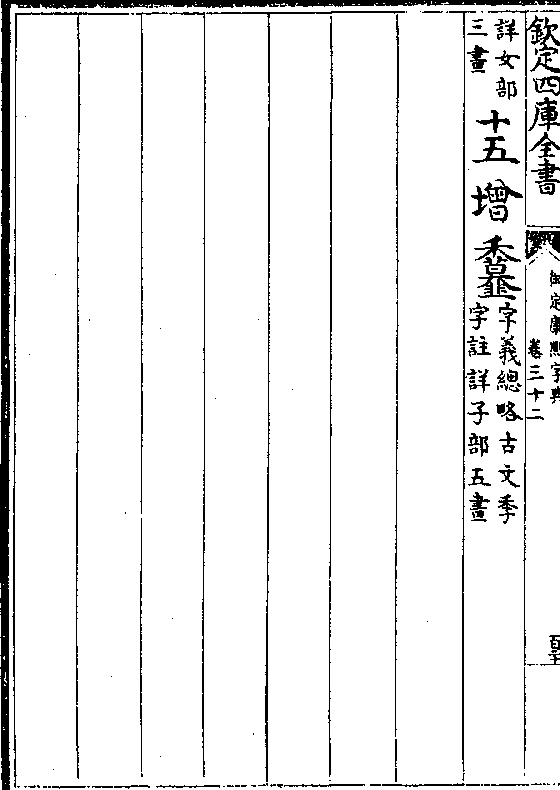 欽定四庫全書
御定康熙字典
卷三十二
詳女部
三畫
十五
增
字義總略古文季
字註詳子部五畫